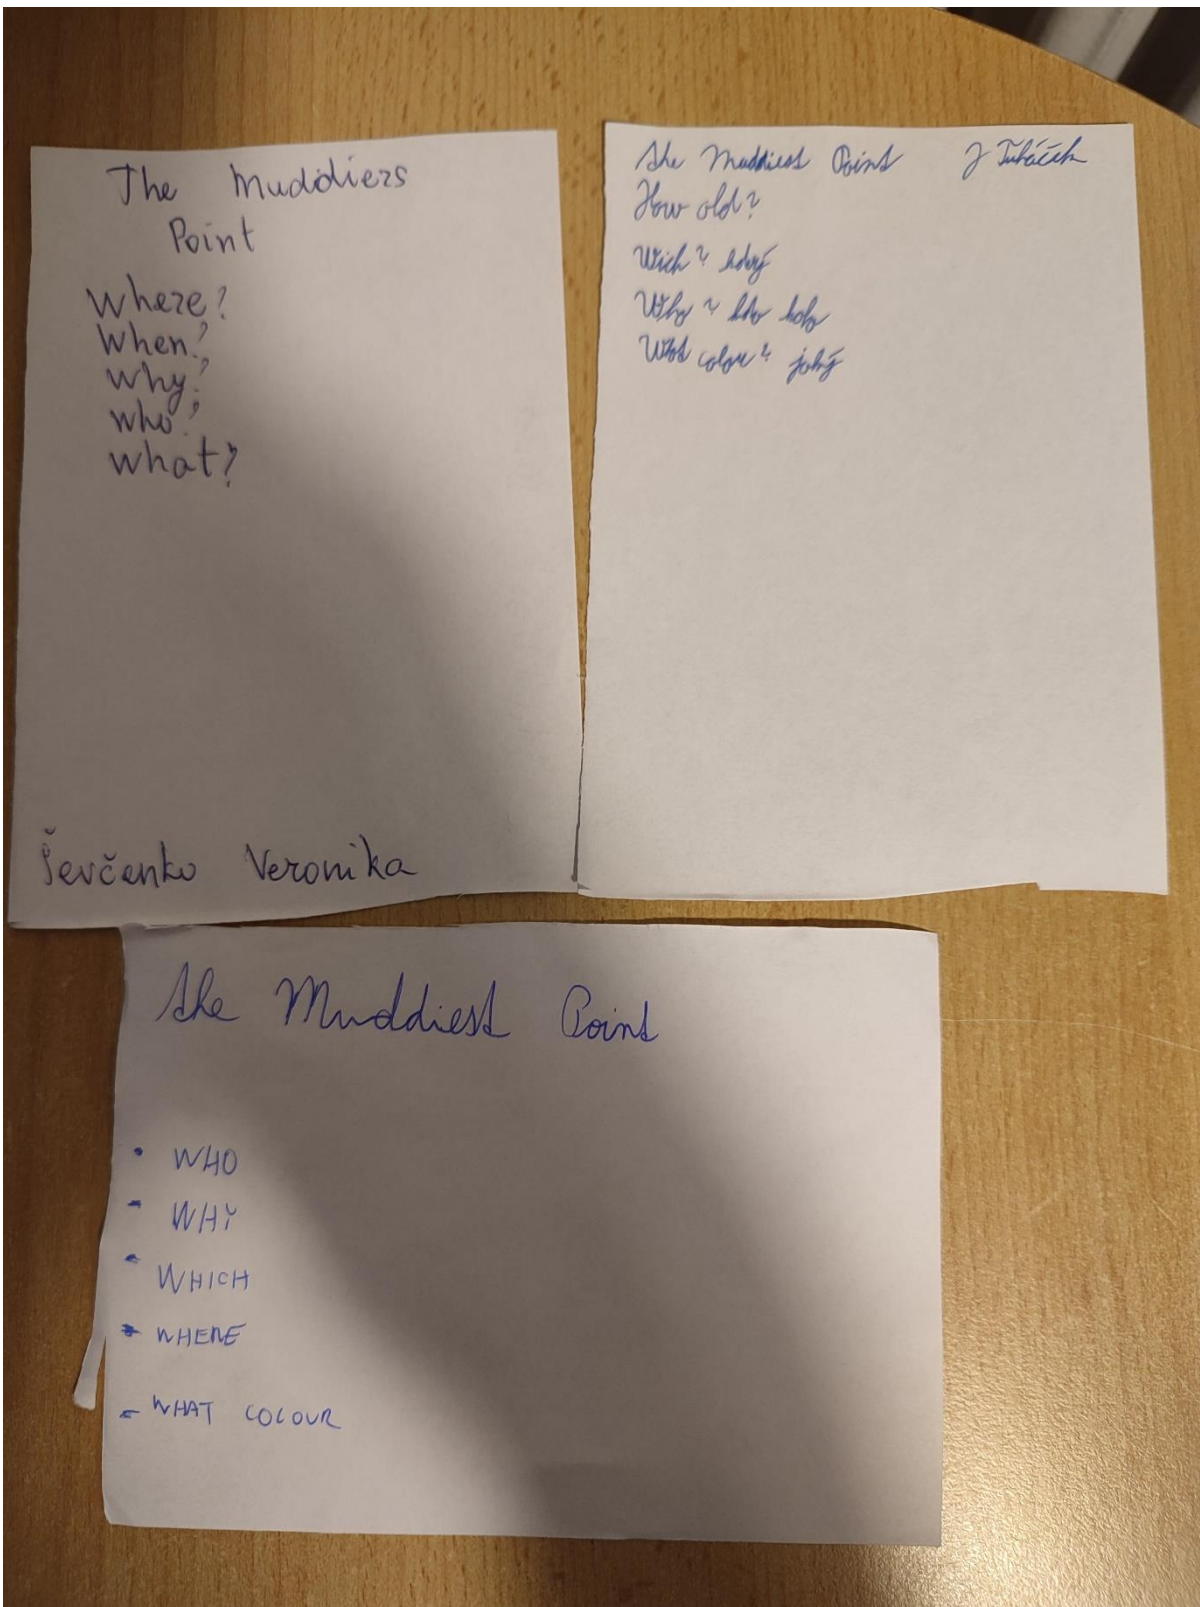 The Muddiers
Point
Where?
When?
Why?
Who?
What?
Ševčenko Veronika
The Muddiest Point J
How old?
Wich?
Who?
What colour? jaký
The Muddiest Point
WHO
WHY
WHICH
WHERE
WHAT COLOUR